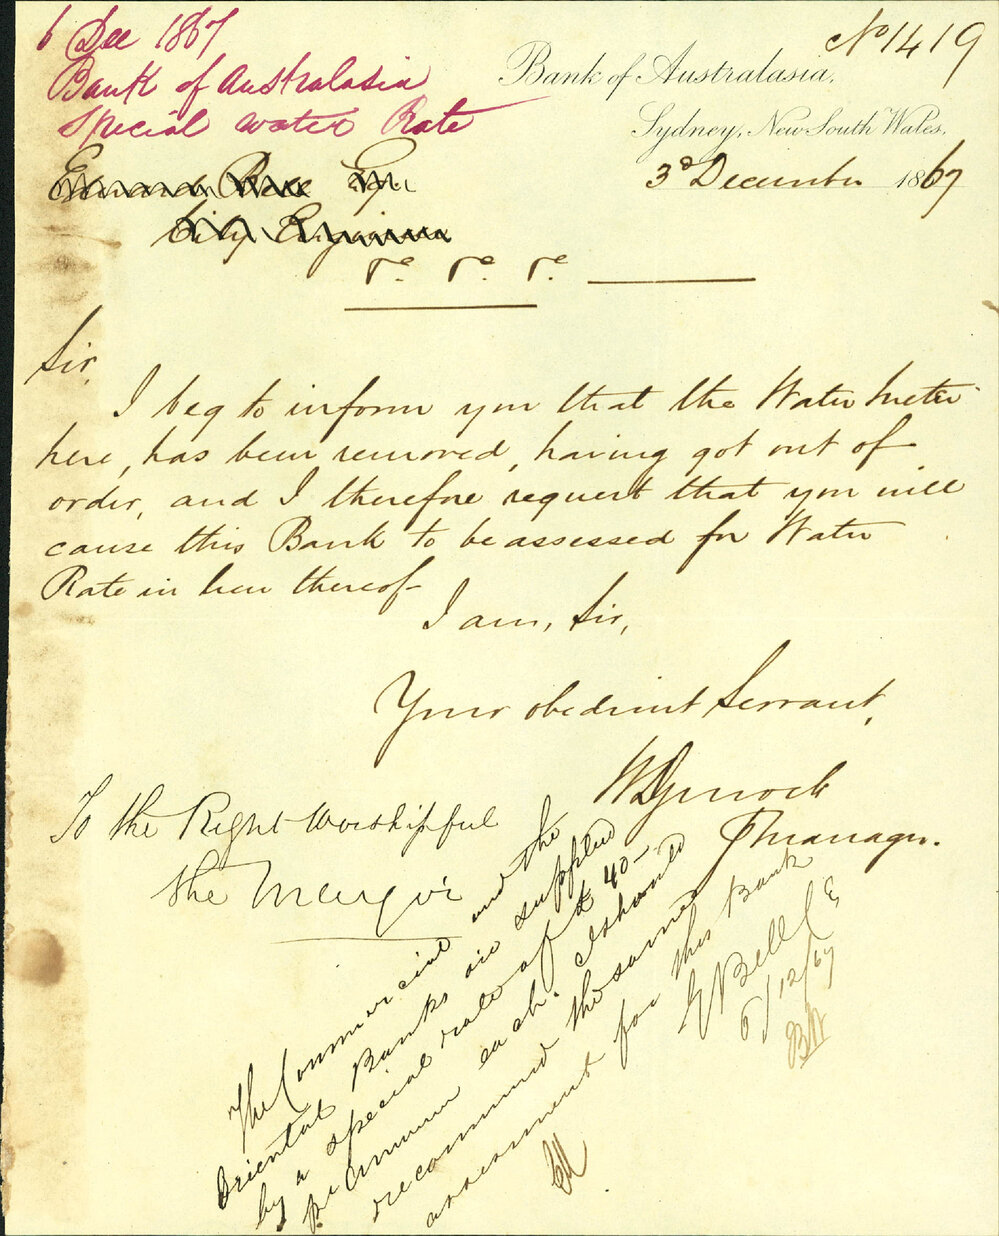 6 Dec 1867
Bank of Australasia
Special Water Rate
No 1419
Bank of Australasia,
Sydney, New South Wales,
3d December 1867
Edward Bell Esq.
City Engineer
Sir,
I beg to inform you that the Water Meter
here, has been removed, having got out of
order, and I therefore request that you will
cause this Bank to be assessed for Water
Rate in lieu thereof—
I am, Sir,
Your obedient Servant,
Manager.
To the Right Worshipful
the Mayor
The Commercial and the
Oriental Banks are supplied
by a special rate of £40—
per annum each. I should
recommend the same
assessment for this Bank
E Bell CE
6/12/67